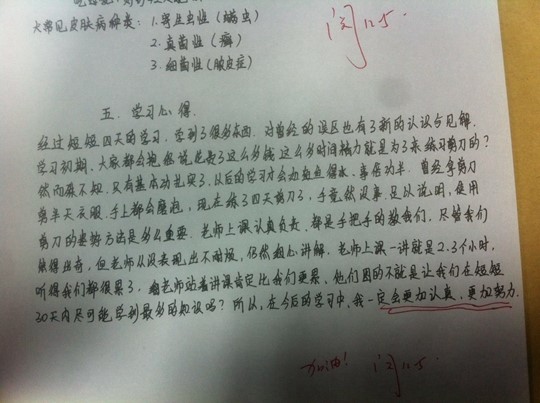 犬常见皮肤病种类：1.寄生虫性（螨虫）
2.真菌性（癣）
3.细菌性（脓皮症）
11.5.
五. 学习心得.
经过短短四天的学习. 学到了很多东西. 对曾经的误区也有了新的认识与见解.
学习初期. 大家都会抱怨说花了这么多钱这么多时间精力就是为了来练习剪刀的？
然而殊不知. 只有基本功扎实了. 以后的学习才会如鱼得水. 事倍功半. 曾经拿剪刀
剪半天衣服. 手上都会磨泡, 现在练了四天剪刀了, 手竟然没事. 足以说明, 使用
剪刀的姿势方法是多么重要. 老师上课认真负责. 都是手把手的教我们, 尽管我们
笨得出奇, 但老师从没表现出不耐烦, 仍然细心讲解. 老师上课一讲就是2.3个小时,
听得我们都很累了. 老师站着讲课肯定比我们更累. 他们图的不就是让我们在短短
30天内尽可能学到最多的知识吗？所以, 在今后的学习中, 我一定会更加认真, 更加努力.
加油! 11.5